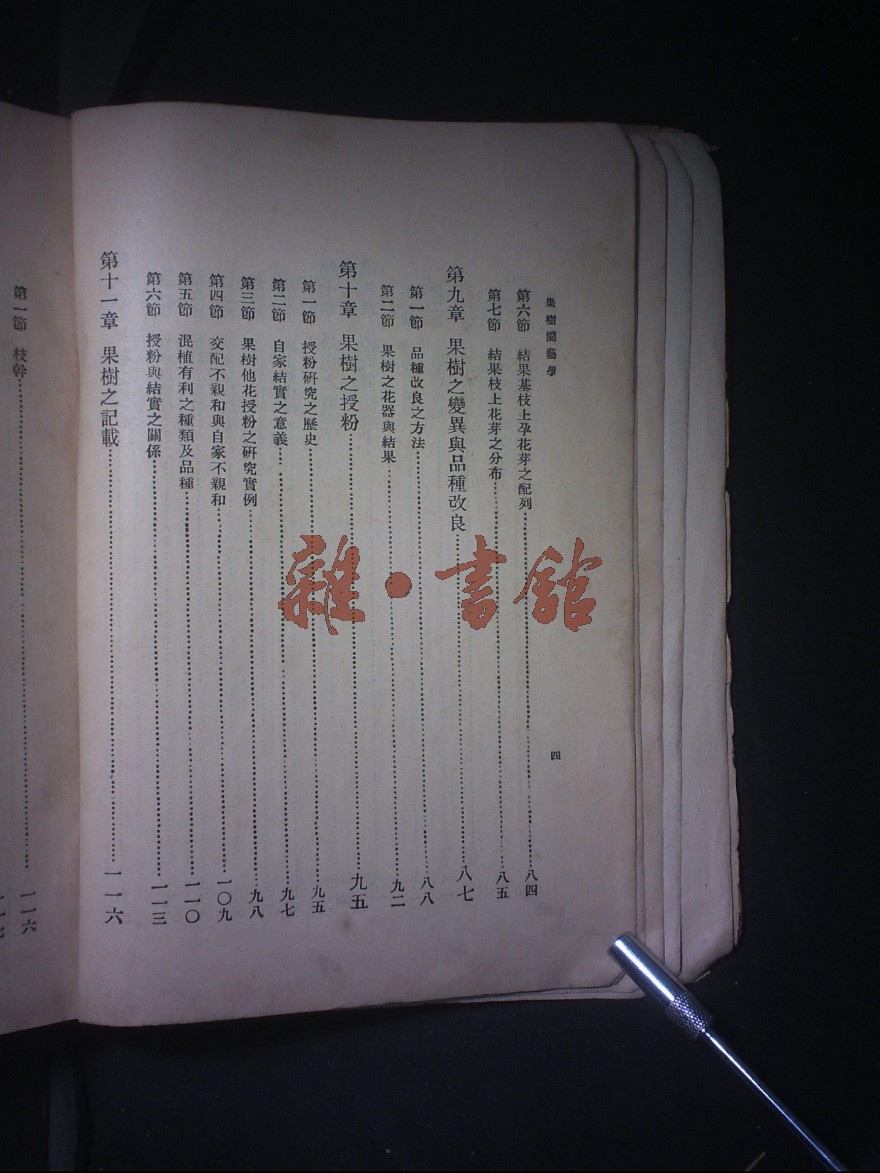 果樹園藝學
四
第六節 結果基枝上孕花芽之配列……八四
第七節 結果枝上花芽之分布……八五
第九章 果樹之變異與品種改良……八七
第一節 品種改良之方法……八八
第二節 果樹之花器與結果……九二
第十章 果樹之授粉……九五
第一節 授粉硏究之歷史……九五
第二節 自家結實之意義……九七
第三節 果樹他花授粉之硏究實例……九八
第四節 交配不親和與自家不親和……一〇九
第五節 混植有利之種類及品種……一一〇
第六節 授粉與結實之關係……一一三
第十一章 果樹之記載……一一六
第一節 枝幹……一一六
一一七
雜·書館